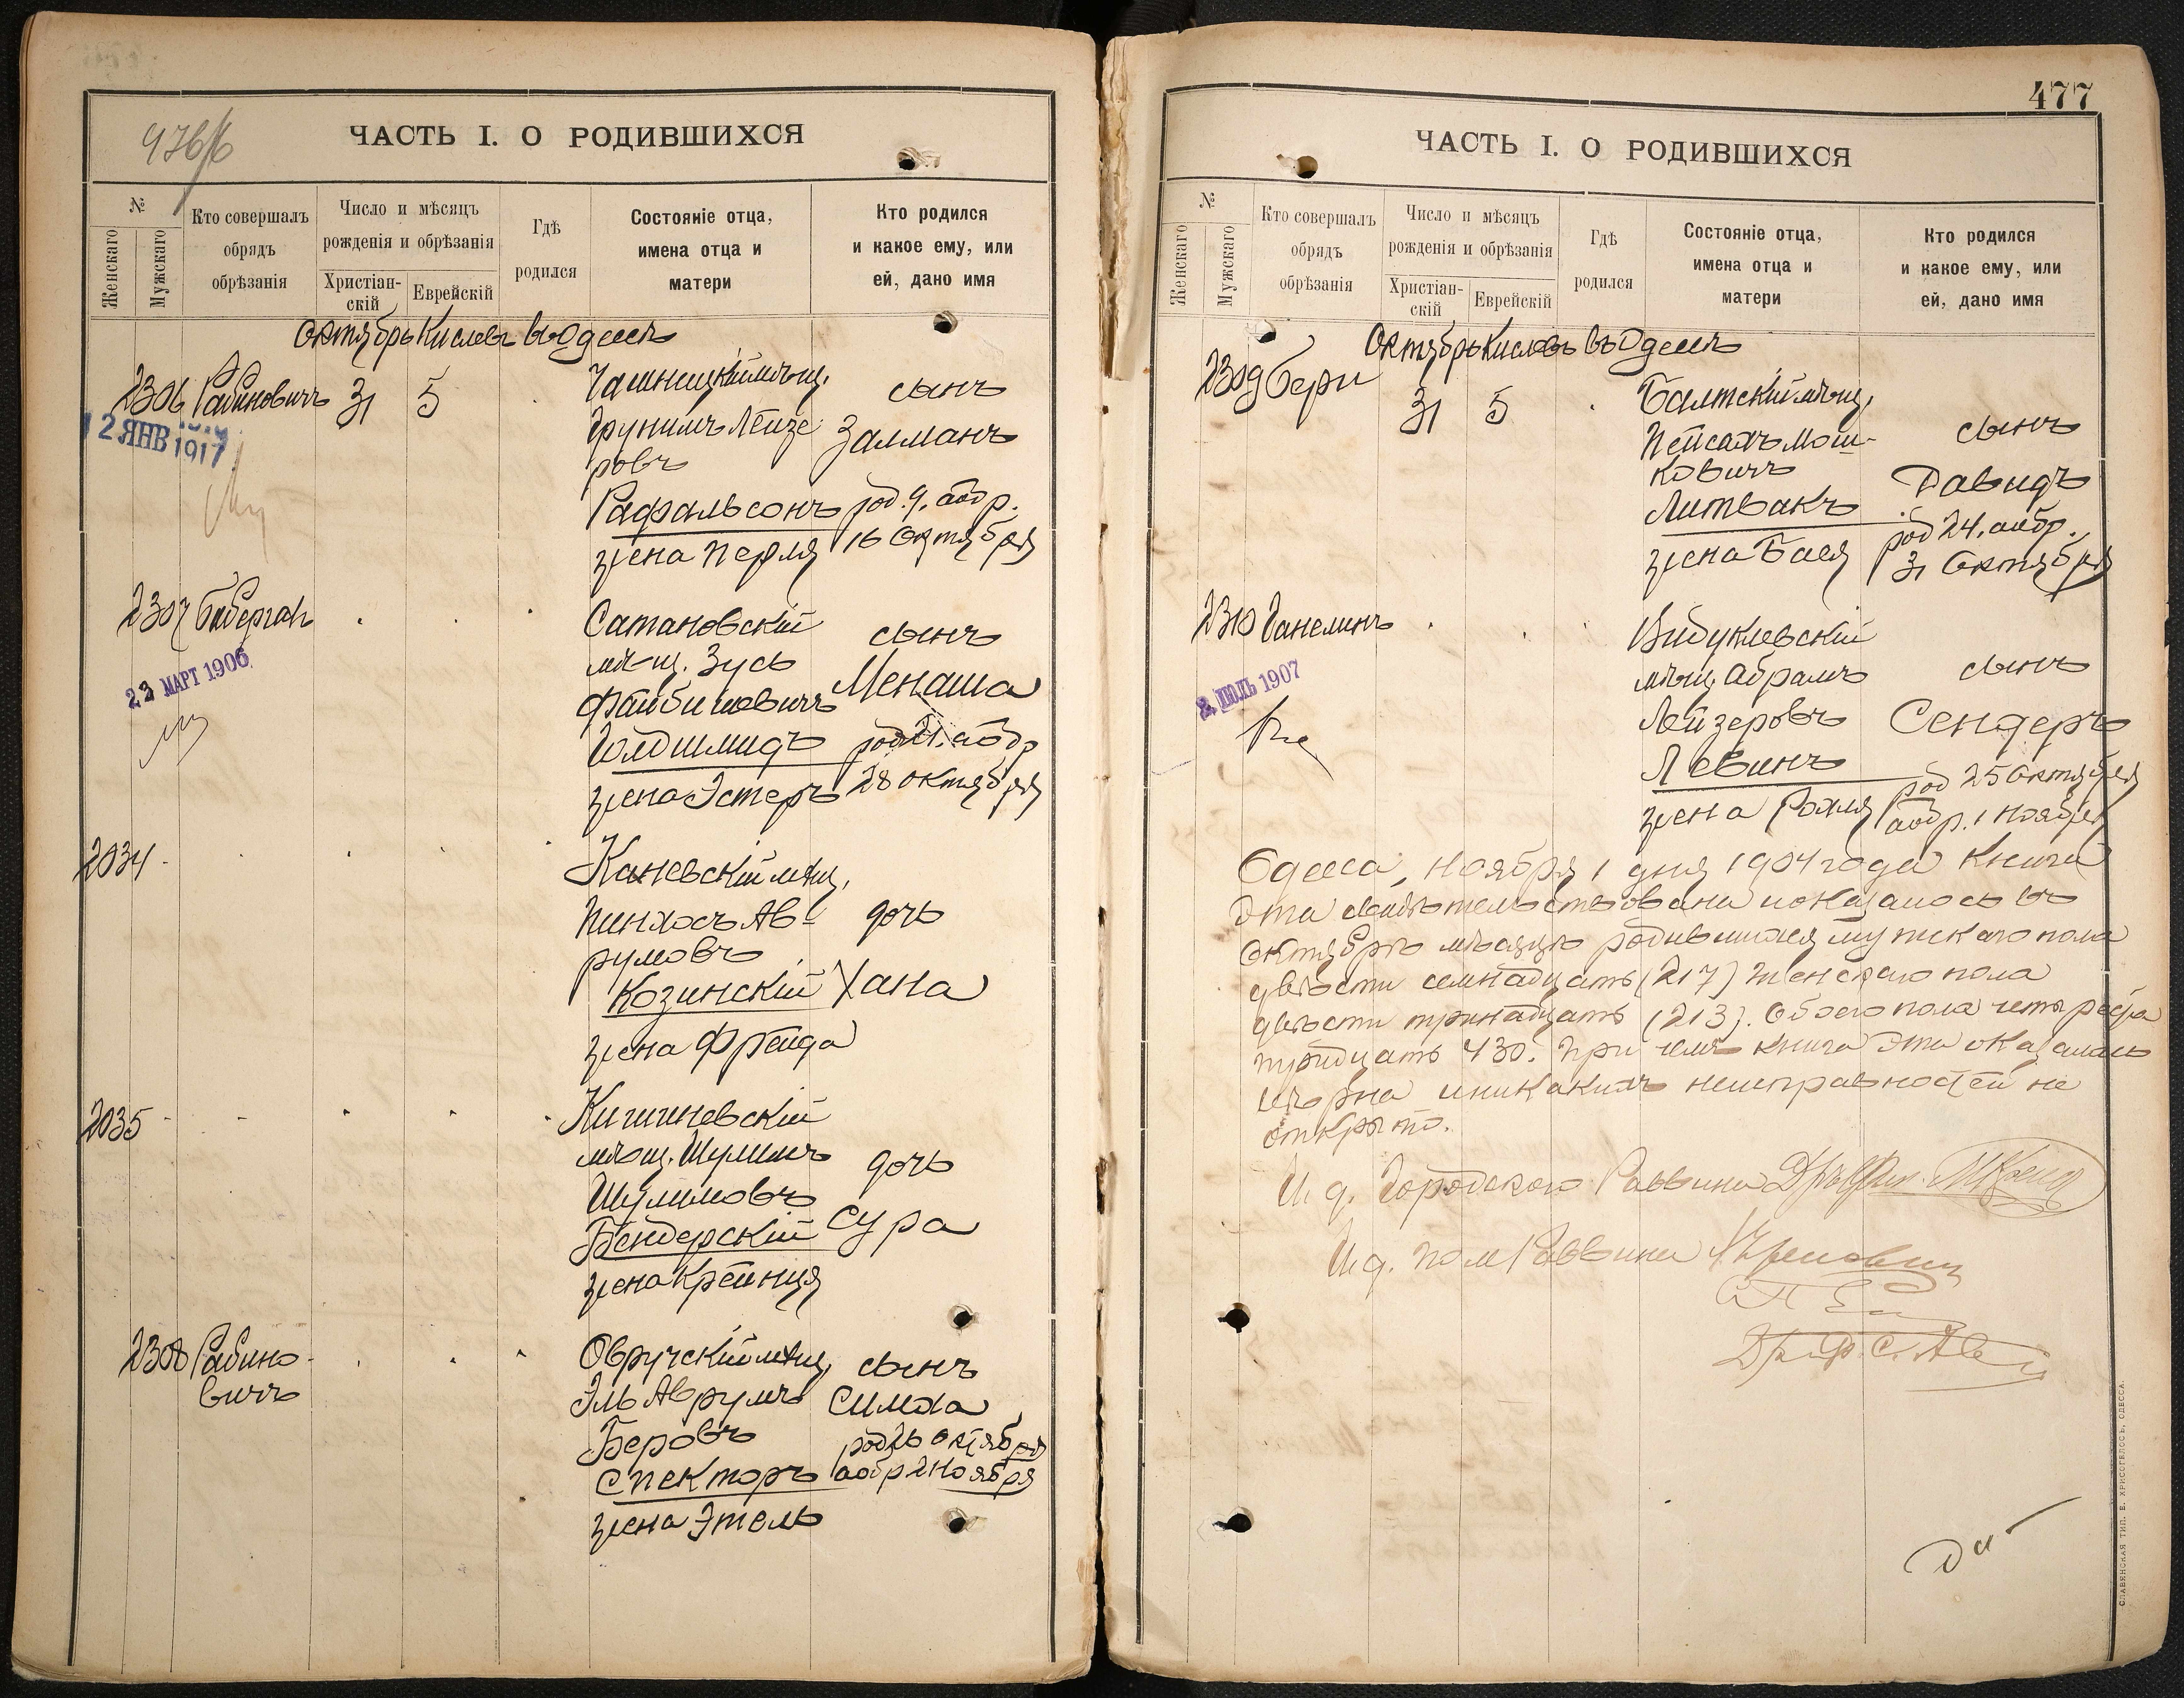 976/б
ЧАСТЬ I. О РОДИВШИХСЯ
№
Женскаго
Мужскаго
Кто совершалъ
обрядъ
обрѣзанія
Число и мѣсяцъ
рожденія и обрѣзанія
Христіан-
скій
Еврейскій
Гдѣ
родился
Состояніе отца,
имена отца и
матери
Кто родился
и какое ему, или
ей, дано имя
Октябрь Кислевъ въ Одессѣ
2306 Рабиновичъ 31 5
12 ЯНВ 1917
Чашницкій мѣщ.
Фунимъ Лейзе
ровъ
Рафальсонъ
жена Перля
сынъ
Залманъ
род. 9. аобр.
16 Октября
2307
22 МАРТ 1906
Сатановскій
мѣщ. Зусь
Файбишовичъ
Голдшмидъ
жена Эстеръ
сынъ
Менаша
род 21. аобр
28 октября
2034
Каневскій мѣщ.
Пинхосъ Ав-
румовъ
Козинскій
жена Фрейда
дочь
Хана
2035
Кишиневскій
мѣщ. Шулимъ
Шулимовъ
Бендерскій
жена Крейнця
дочь
Сура
2308 Рабино-
вичъ
Овручскій мѣщ.
Эль Аврумъ
Беровъ
Спекторъ
жена Этель
сынъ
Симха
род 26 октября
аобр 2 Ноября
477
ЧАСТЬ I. О РОДИВШИХСЯ
№
Женскаго
Мужскаго
Кто совершалъ
обрядъ
обрѣзанія
Число и мѣсяцъ
рожденія и обрѣзанія
Христіан-
скій
Еврейскій
Гдѣ
родился
Состояніе отца,
имена отца и
матери
Кто родился
и какое ему, или
ей, дано имя
Октябрь Кислевъ въ Одессѣ
2309 Бери 31 5
Балтскій мѣщ.
Пейсахъ Мош-
ковичъ
Литвакъ
жена Бася
сынъ
Давидъ
род 24. аобр.
31 Октября
2310 Ганелинъ
2 ІЮЛЬ 1907
Видуклевскій
мѣщ. Абрамъ
Лейзеровъ
Левинъ
жена Рохля
сынъ
Сендеръ
род 25 Октября
аобр. 1 Ноября
Одесса, Ноября 1 дня 1904 года Книга
эта свидѣтельствована и оказалось въ
Октябрѣ мѣсяцѣ родившихся мужскаго пола
двѣсти семнадцать (217) женскаго пола
двѣсти тринадцать (213). Обоего пола четыреста
тридцать 430. При чемъ книга эта оказалась
вѣрна и никакихъ неисправностей не
открыто.
И. д. Городского Раввина
И. д. пом. Раввина
СЛАВЯНСКАЯ ТИП. Е. ХРИСОГЕЛОСЪ, ОДЕССА.